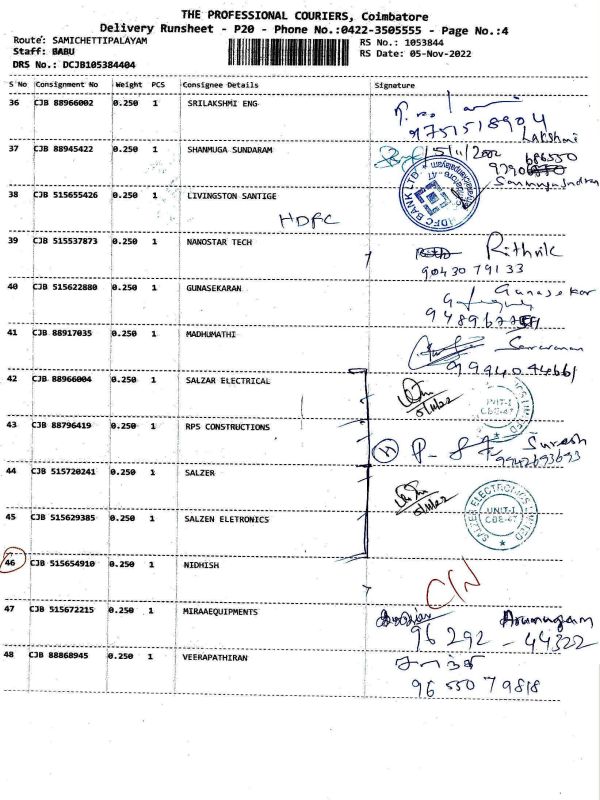 THE PROFESSIONAL COURIERS, Coimbatore
Delivery Runsheet - P20 - Phone No.:0422-3505555 - Page No.:4
Route: SAMICHETTIPALAYAM
RS No.: 1053844
Staff: BABU
RS Date: 05-Nov-2022
DRS No.: DCJB105384404
S No Consignment No Weight PCS Consignee Details Signature
36 CJB 88966002 0.250 1 SRILAKSHMI ENG
9751518904
Lakshmi
37 CJB 88945422 0.250 1 SHANMUGA SUNDARAM
686550
38 CJB 515655426 0.250 1 LIVINGSTON SANTIGE
HDFC
HDFC BANK LTD
39 CJB 515537873 0.250 1 NANOSTAR TECH
Rithvik
9043079133
40 CJB 515622880 0.250 1 GUNASEKARAN
Gunasekar
41 CJB 88917035 0.250 1 MADHUMATHI
Saravanan
9994094661
42 CJB 88966004 0.250 1 SALZAR ELECTRICAL
5/11/22
UNIT-I
CBE-47
43 CJB 88796419 0.250 1 RPS CONSTRUCTIONS
Suresh
9942693693
44 CJB 515720241 0.250 1 SALZER
5/11/22
45 CJB 515629385 0.250 1 SALZEN ELETRONICS
SALZER ELECTRONICS LIMITED
UNIT-I
CBE-47
46 CJB 515654910 0.250 1 NIDHISH
C/N
47 CJB 515672215 0.250 1 MIRAAEQUIPMENTS
Arumugam
96 292 - 44322
48 CJB 88868945 0.250 1 VEERAPATHIRAN
சாந்தி
96 550 79818